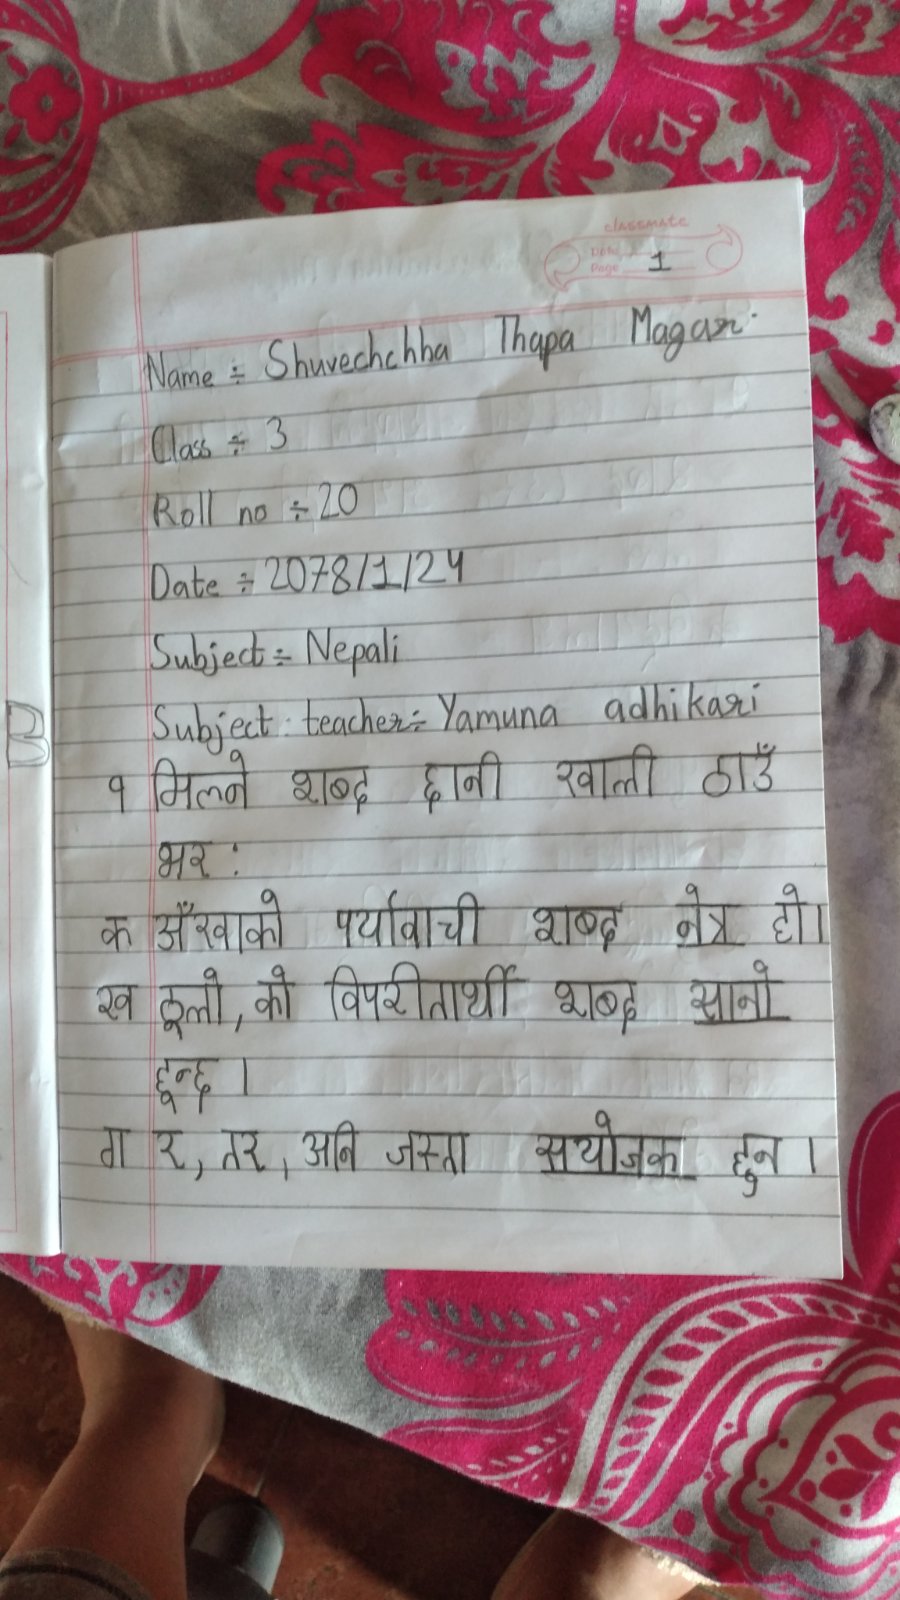 classmate
Date
Page 1
Name ÷ Shuvechchha Thapa Magar.
Class ÷ 3
Roll no ÷ 20
Date ÷ 2078/1/24
Subject ÷ Nepali
Subject : teacher ÷ Yamuna adhikari
१ मिल्ने शब्द छानी खाली ठाउँ
भर :
क अँखाको पर्यावाची शब्द नेत्र हो।
ख ठूलो, को विपरीतार्थी शब्द सानो
हून्छ ।
ग र, तर, अनि जस्ता सयोजक हुन ।
B